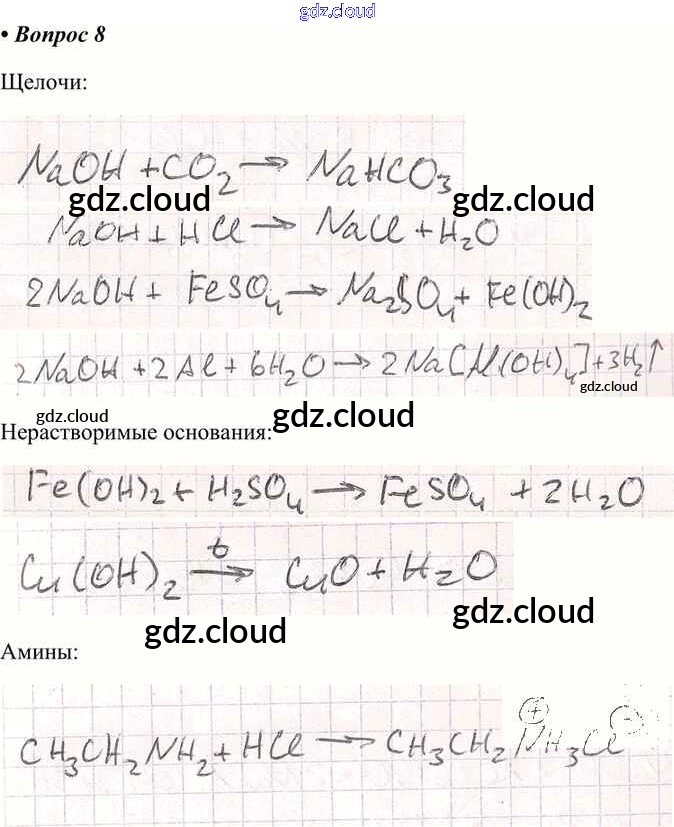 gdz.cloud
• Вопрос 8
Щелочи:
NaOH + CO₂ → NaHCO₃
gdz.cloud gdz.cloud
NaOH + HCl → NaCl + H₂O
2NaOH + FeSO₄ → Na₂SO₄ + Fe(OH)₂
2NaOH + 2Al + 6H₂O → 2Na[Al(OH)₄] + 3H₂↑
gdz.cloud
gdz.cloud gdz.cloud
Нерастворимые основания:
Fe(OH)₂ + H₂SO₄ → FeSO₄ + 2H₂O
gdz.cloud
t
Cu(OH)₂ → CuO + H₂O
gdz.cloud
gdz.cloud
Амины:
⊕ ⊖
CH₃CH₂NH₂ + HCl → CH₃CH₂NH₃Cl